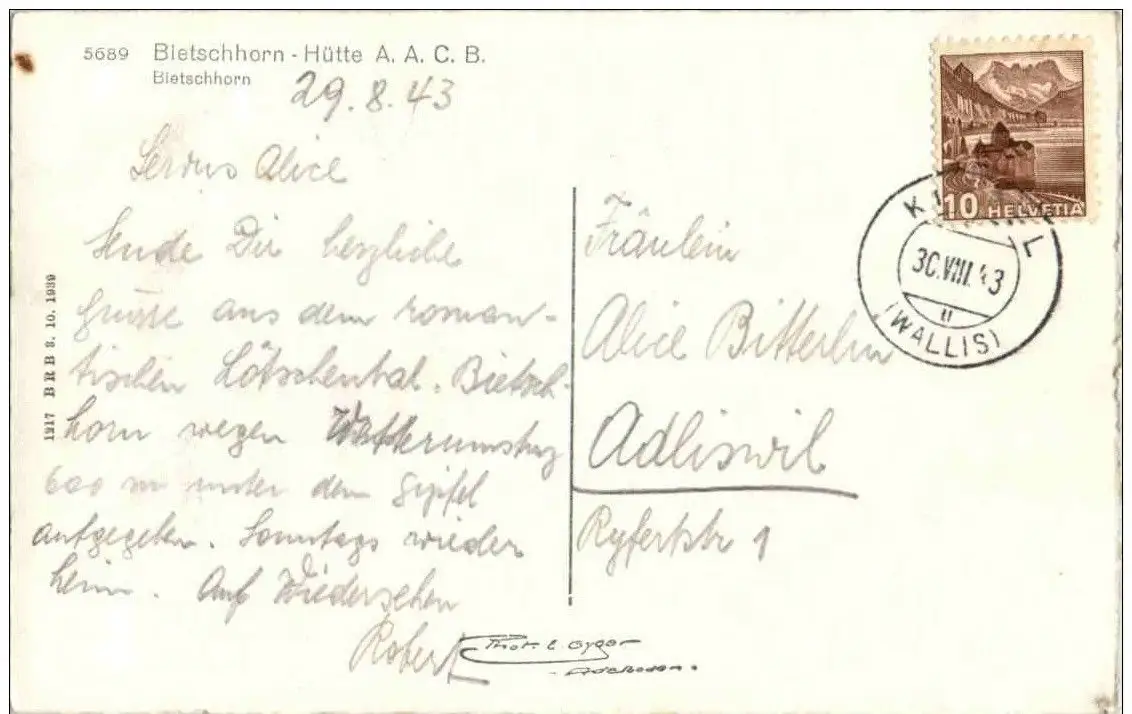 5689 Bietschhorn - Hütte A. A. C. B.
Bietschhorn
29.8.43
Servus Alice
Sende Dir herzliche
Grüsse aus dem roman-
tischen Lötschental. Bietsch-
horn wegen Wetterumsturz
600 m unter dem Gipfel
aufgegeben. Sonntags wieder
heim. Auf Wiedersehen
Robert
1217 BRB 3. 10. 1939
Phot. E. Gyger
Adelboden.
10 HELVETIA
30.VIII.43
(WALLIS)
Fräulein
Alice Bitterlin
Adliswil
1